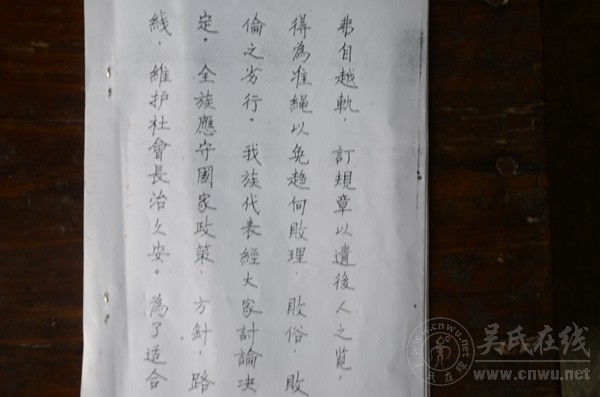 弗自越軌，訂規章以遺後人之览，
得為准繩以免趋向敗理，敗俗，敗
倫之劣行。我族代表經大家討論决
定。全族應守國家政策，方針，路
线，維护社會長治久安。為了适合
吴氏在线
www.cnwu.net